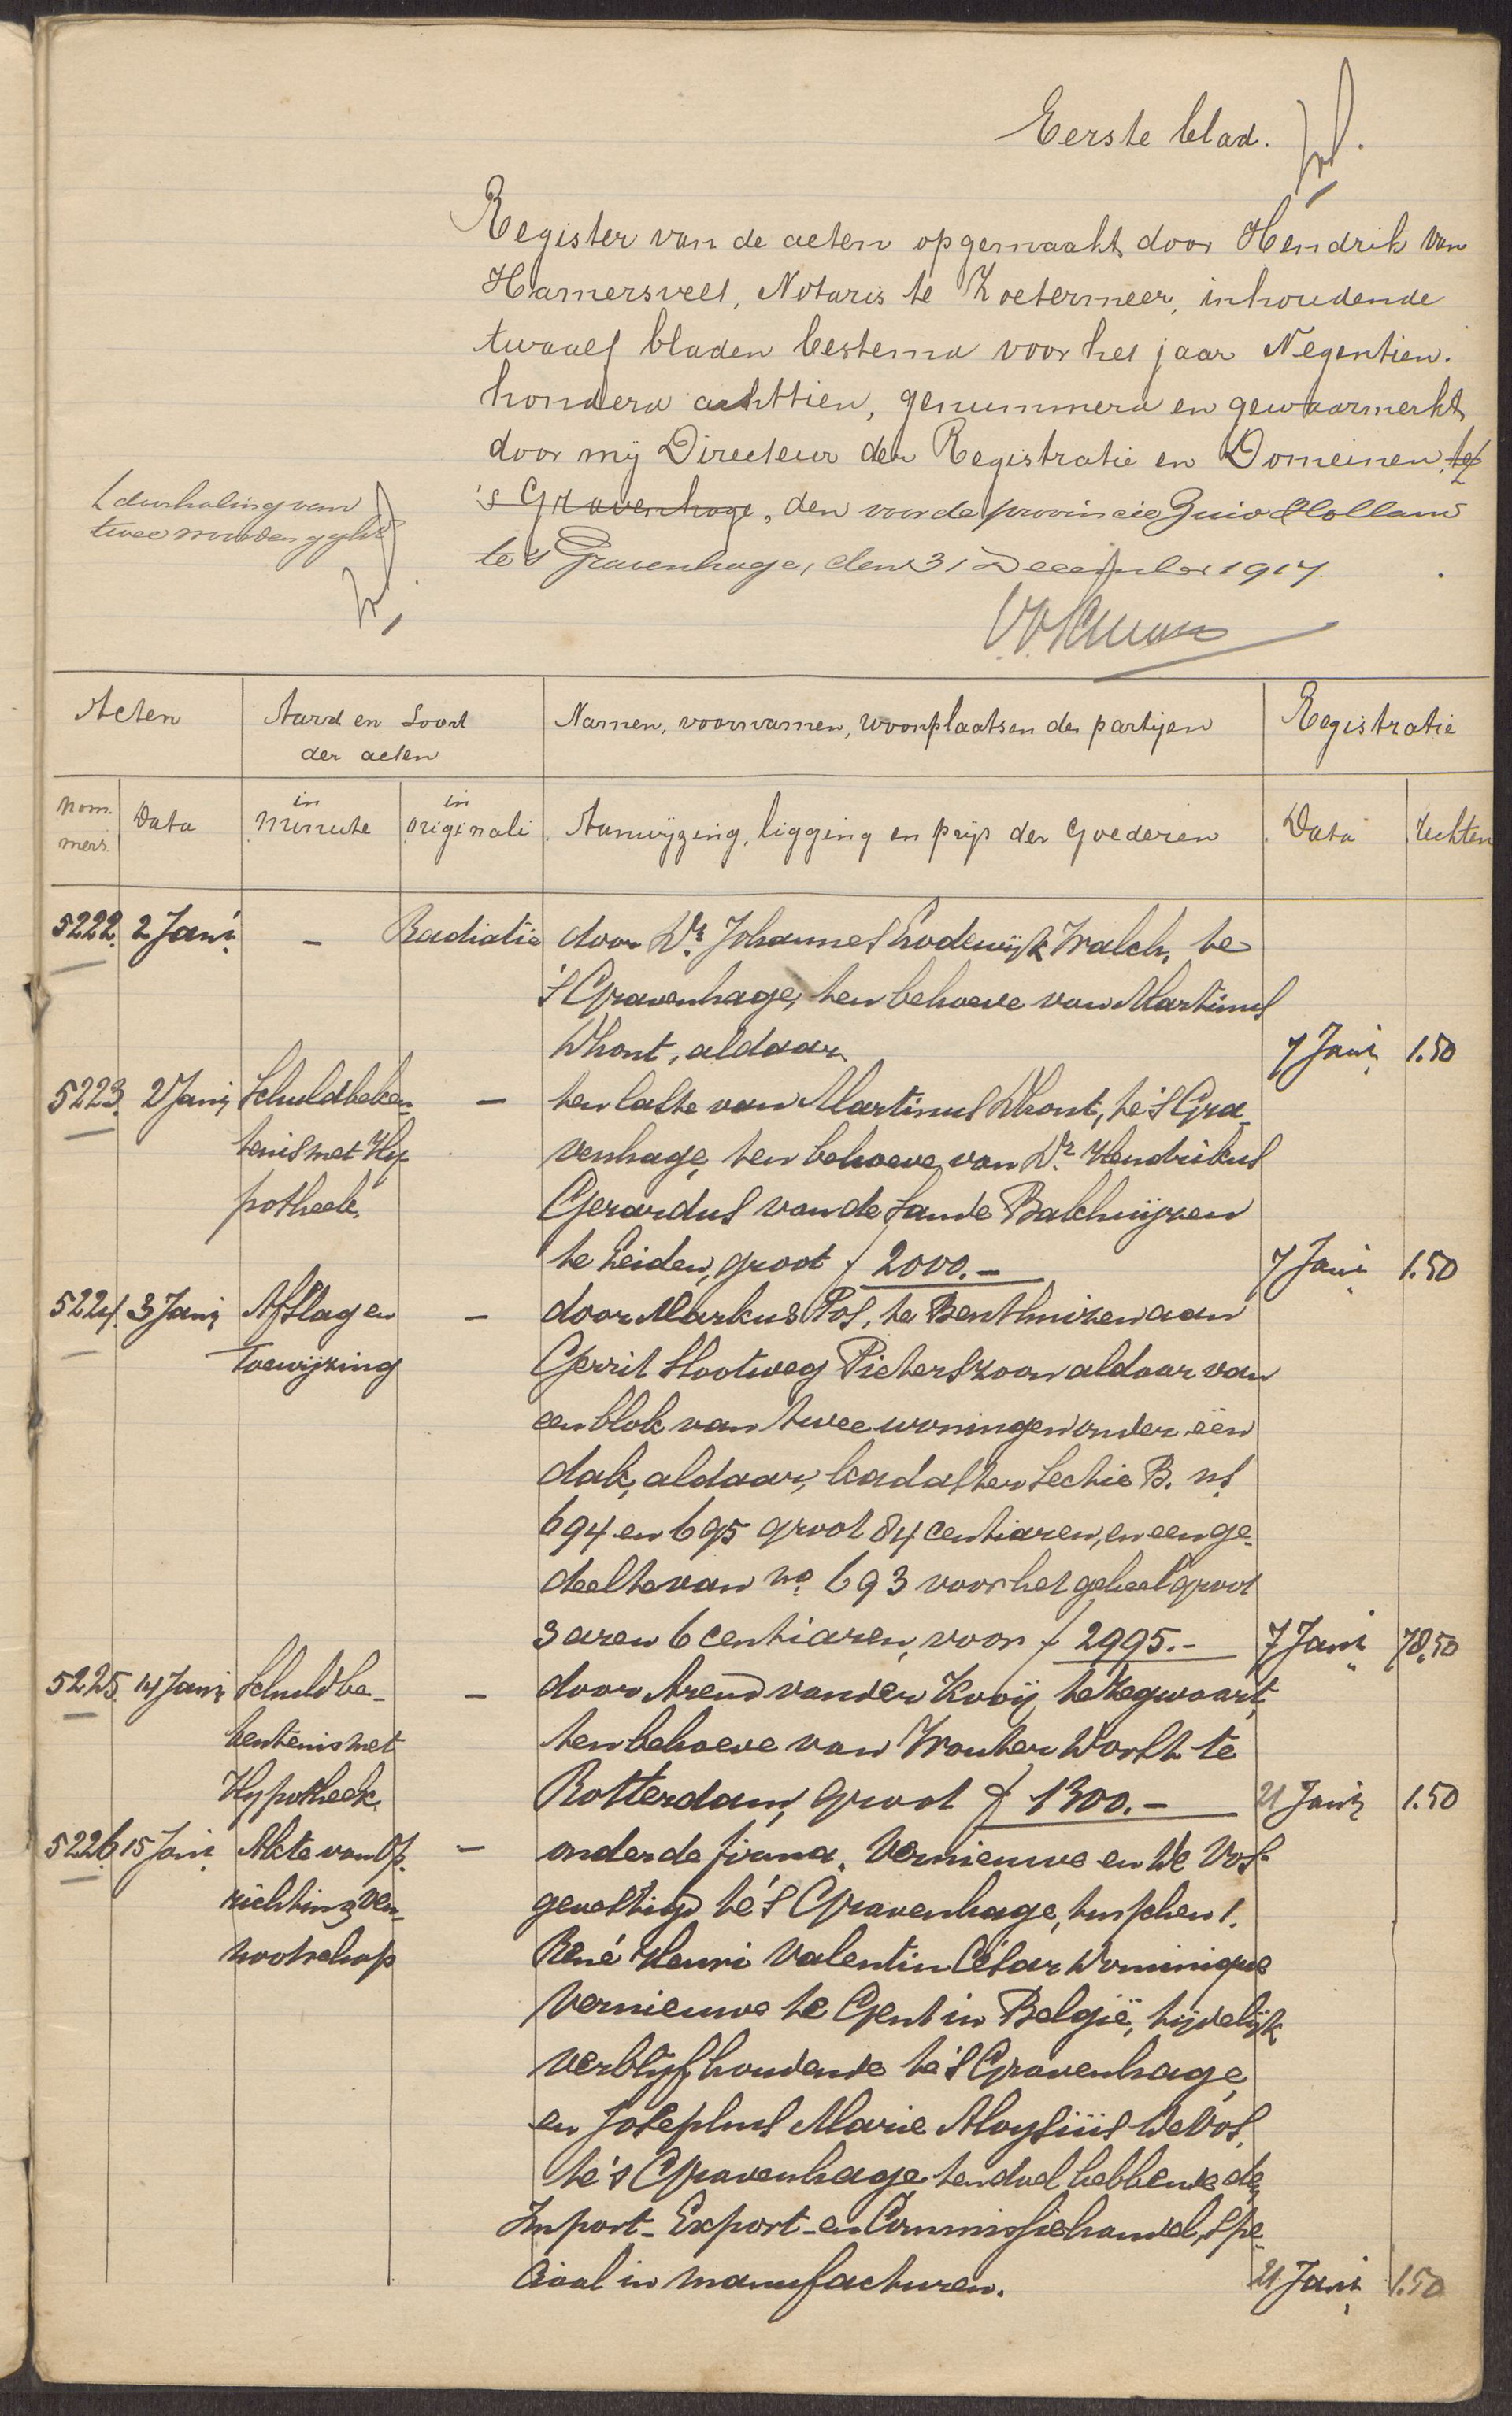 Eerste blad.
Register van de acten opgemaakt door Hendrik van
Hamersvelt, Notaris te Zoetermeer, inhoudende
twaalf bladen bestemd voor het jaar Negentien.
honderd achttien, genummerd en gewaarmerkt
door mij Directeur der Registratie en Domeinen, te
's Gravenhage, den voor de provincie Zuid Holland
te 's Gravenhage, den 31 December 1917.
doorhaling van
twee woorden
Acten
Aard en soort
der acten
Namen, voornamen, woonplaatsen der partijen
Registratie
Nom-
mers
Data
in
minute
in
originali
Aanwijzing, ligging en prijs der goederen
Data
Rechten
5222. 2 Jani. - Radiatie door Dr. Johannes Lodewijk Walch, te
's Gravenhage, ten behoeve van Martinus
Dhont, aldaar. 7 Jani. 1.50
5223. 2 Jani. Schuldbeken- - ten laste van Martinus Dhont, te 's Gra-
tenis met Hy- venhage, ten behoeve van Dr. Hendrikus
potheek. Gerardus van de Sande Bakhuijzen
te Leiden, groot f 2000.- 7 Jani. 1.50
5224. 3 Jani. Afslag en - door Markus Pos, te Benthuizen aan
Toewijzing Gerrit Slootweg Pieterszoon aldaar van
een blok van twee woningen onder één
dak, aldaar, kadaster Sectie B. ns
694 en 695 groot 84 centiaren, en een ge-
deelte van no. 693 voor het geheel groot
3 aren 6 centiaren, voor f 2995.- 7 Jani. 78,50
5225. 14 Jani. Schuldbe- - door Arend van der Kooij, te Zegwaart,
kentenis met ten behoeve van Wouter te
Hypotheek. Rotterdam, groot f 1300.- 21 Jani. 1.50
5226. 15 Jani. Akte van Op- - onder de firma. Vernieuwe en De Vos-
richting Ven- gevestigd te 's Gravenhage, tusschen 1.
nootschap René Henri Valentin César Dominique
Vernieuwe te Gent in België, tijdelijk
verblijfhoudende te 's Gravenhage,
en Josephus Marie Aloysiüs De Vos,
te 's Gravenhage, ten doel hebbende de
Import- Export- en Commissiehandel, spe-
ciaal in manufacturen. 21 Jani. 1.50